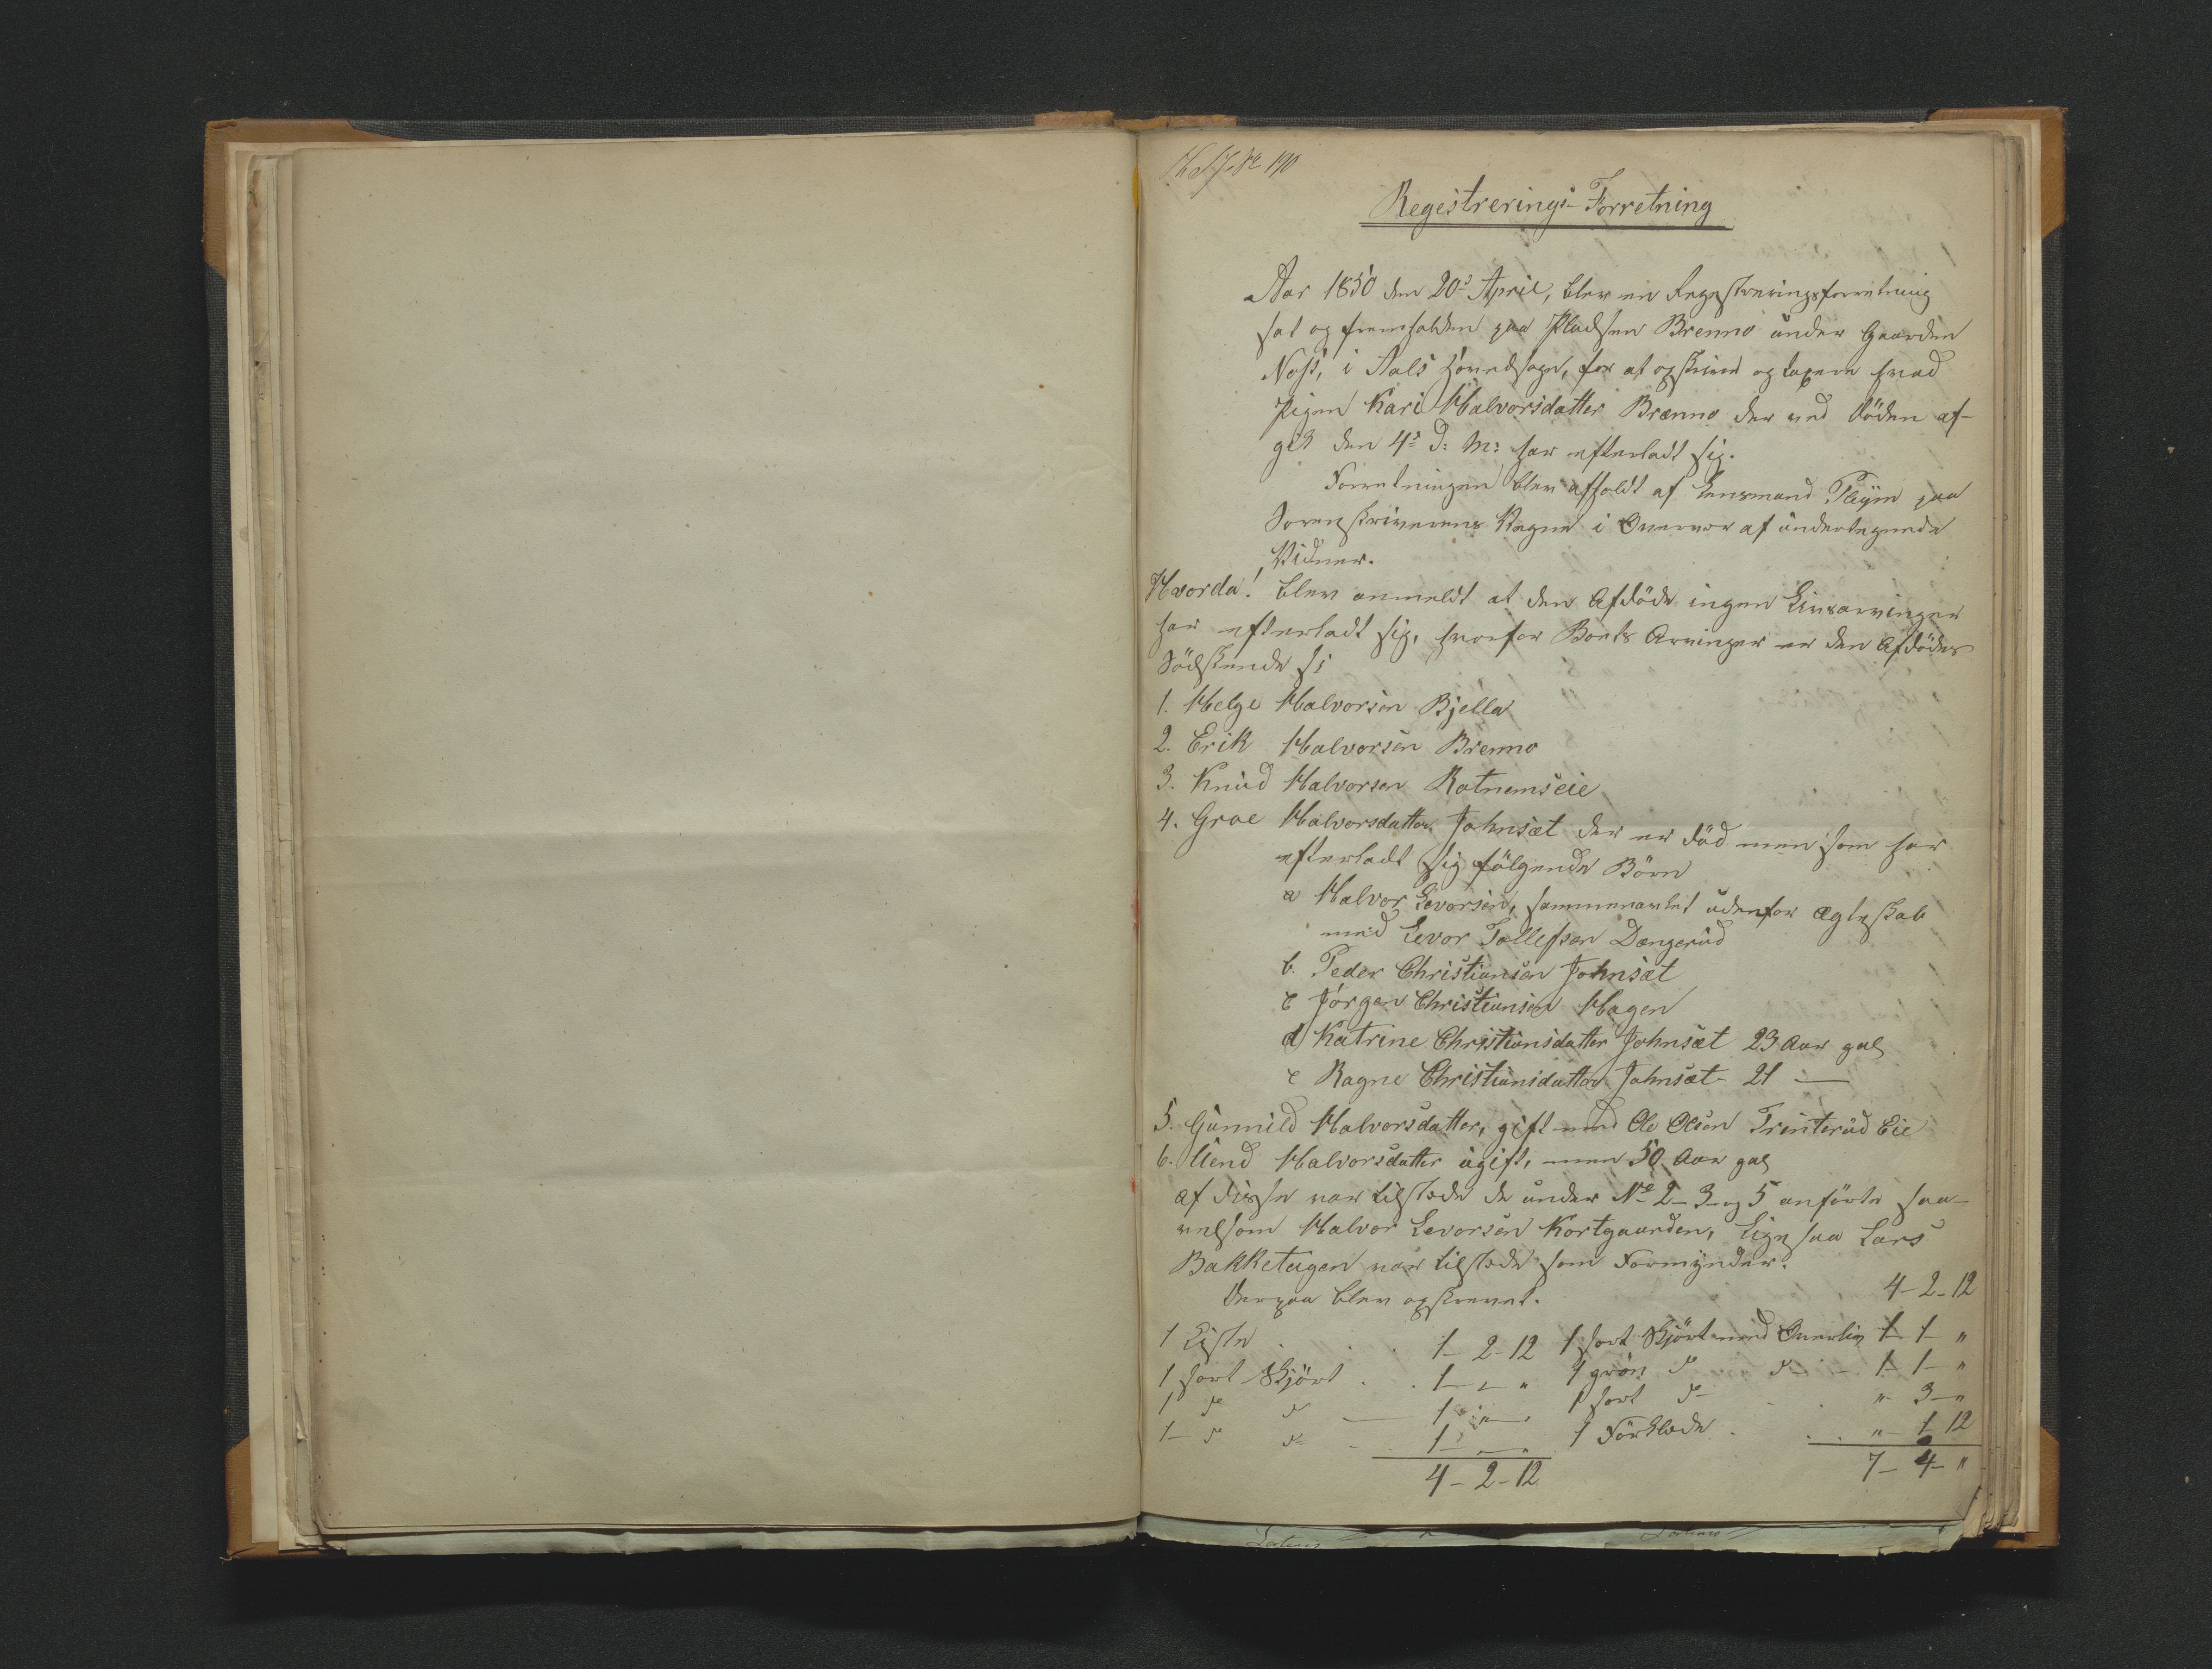 No 190
Regestrerings-Forretning
Aar 1850 den 20de April, blev en Regestreringsforretning
sat og fremholden paa Pladsen Brenno under Gaarden
Noss, i Aals Hovedsogn, for at opskrive og taxere hvad
Pigen Kari Halvorsdatter Brænno der ved Döden af-
gik den 4de d: M: har efterladt sig.
Forretningen blev afholdt af Lensmand Pleÿm paa
Sorenskriverens Vegne i Overvær af undertegnede
Vidner.
Hvorda! blev anmeldt at den Afdöde ingen Livsarvinger
har efterladt sig, hvorfor Boets Arvinger er den Afdödes
Södskende s:
1. Helge Halvorsen Bjella
2. Erik Halvorsen Brenno
3. Knud Halvorsen Rotnemseie
4. Groe Halvorsdatter Johnsæt der er död men som har
efterladt sig fölgende Börn
a Halvor Levorsen, sammenavlet udenfor Ægteskab
med Levor Tollefsen Dængerud
b. Peder Christiansen Johnsæt
c Jörgen Christiansen Hagen
d) Katrine Christiansdatter Johnsæt 23 Aar gal
e Ragne Christiansdatter Johnsæt - 21 —
5. Gunnild Halvorsdatter, gift med Ole Olsen Trinterud Eie
6. Uend Halvorsdatter ugift, men 50 Aar gal
af disse var tilstede de under No 2 - 3 og 5 anförte saa-
velsom Halvor Levorsen Kortgaarden, ligesaa Lars
Bakketeigen var tilstede som Formynder.
Derpaa blev opskrevet. 4 - 2 - 12
1 Kiste . . 1 - 2 - 12 1 sort Skjört med Overliv 1 - 1 - "
1 sort Skjört . . 1 - - " 1 grön do do - 1 - 1 - "
1 do do — 1 " 1 sort do . . " 3 - "
1 - do do . . 1 - - " 1 Forklæde . . . " - 1 12
4 - 2 - 12 7 - 4 - "